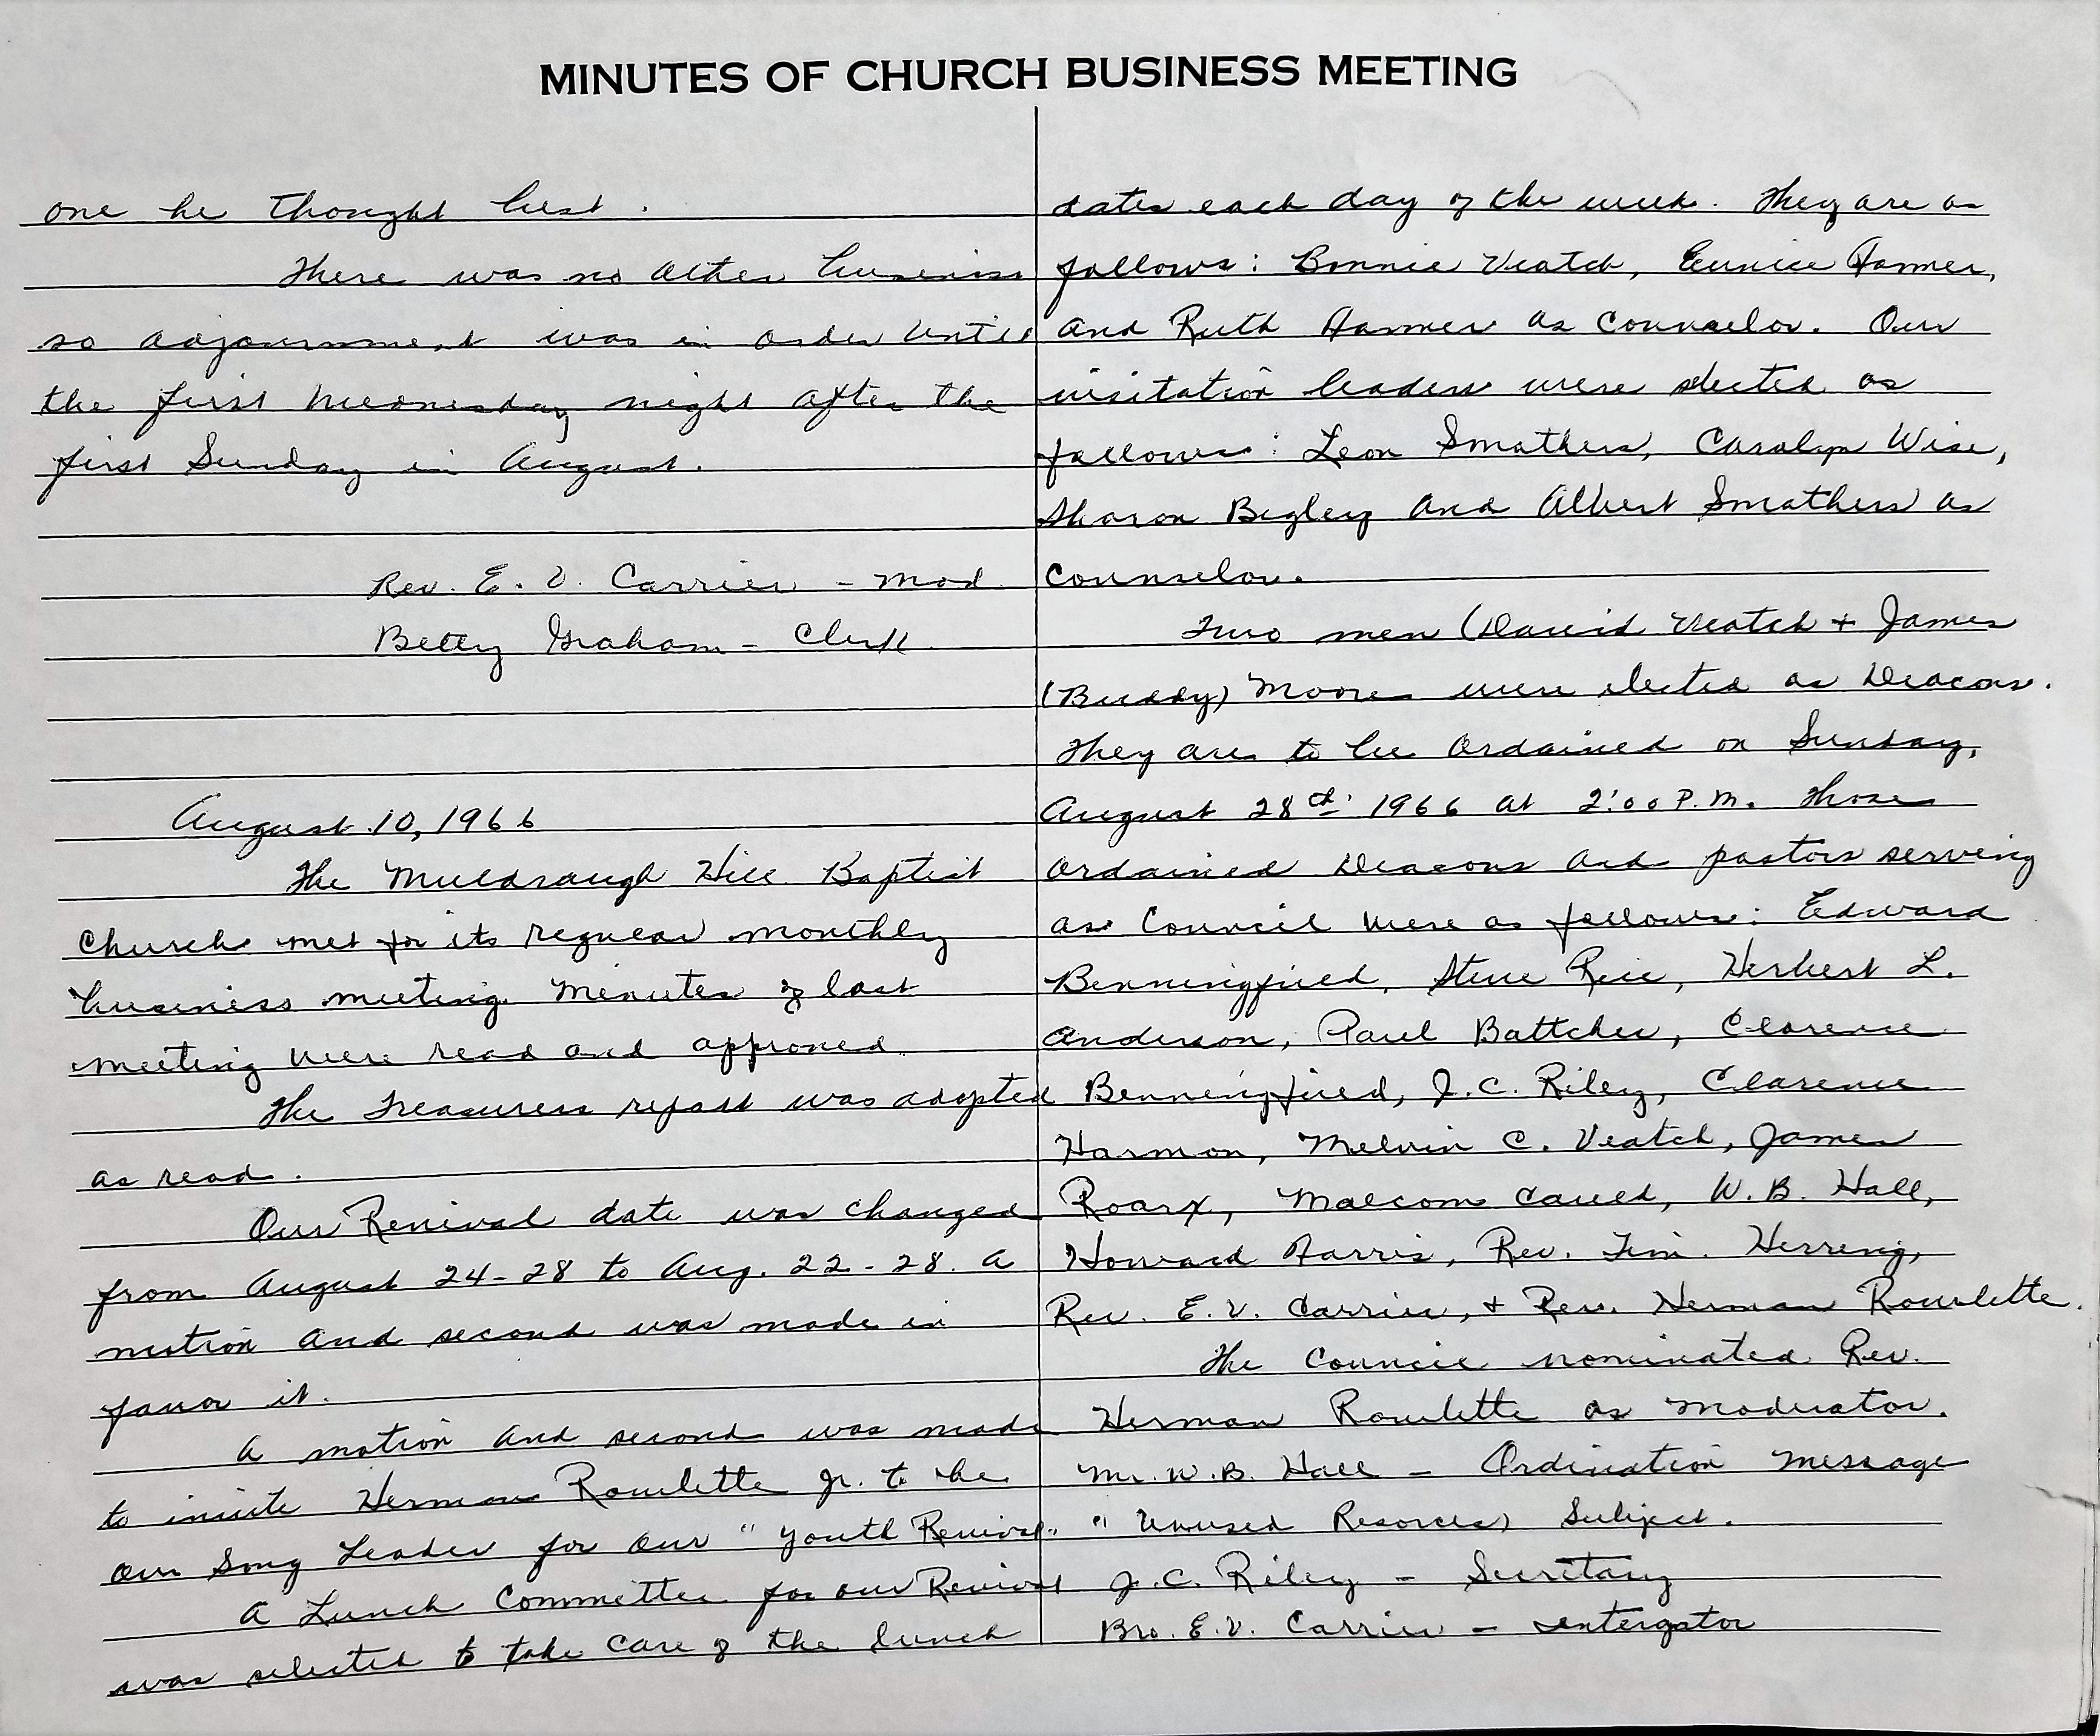 MINUTES OF CHURCH BUSINESS MEETING
one he thought best.
There was no other business
so adjournment was in order until
the first Wednesday night after the
first Sunday in August.
Rev. E. V. Carrier - Mod.
Betty Graham - Clerk
August 10, 1966
The Muldraugh Hill Baptist
Church met for its regular monthly
business meeting. Minutes of last
meeting were read and approved.
The Treasurers report was adopted
as read.
Our Revival date was changed
from August 24-28 to Aug. 22-28. A
motion and second was made in
favor it.
A motion and second was made
to invite Herman Rowlette Jr. to be
our Song Leader for our "Youth Revival."
A Lunch Committee for our Revival
was selected to take care of the lunch
dates each day of the week. They are as
follows: Bonnie Veatch, Eunice Farmer,
and Ruth Farmer as Counselor. Our
visitation leaders were elected as
follows: Leon Smathers, Carolyn Wise,
Sharon Begley and Albert Smathers as
Counselor.
Two men (David Veatch + James
(Buddy) Moore were elected as Deacons.
They are to be Ordained on Sunday,
August 28th 1966 at 2:00 P.M. Those
Ordained Deacons and pastors serving
as Council were as follows: Edward
Benningfield, Steve Rice, Herbert L.
Anderson, Paul Battcher, Clarence
Benningfield, J.C. Riley, Clarence
Harmon, Melvin C. Veatch, James
Roarx, Malcom Cauld, W. B. Hall,
Howard Farris, Rev. Tim. Herring,
Rev. E.V. Carrier, + Rev. Herman Rowlette.
The Council nominated Rev.
Herman Rowlette as Moderator.
Mr. W.B. Hall - Ordination Message
"Unused Resorces) Subject.
J.C. Riley - Secretary
Bro. E.V. Carrier - intergator